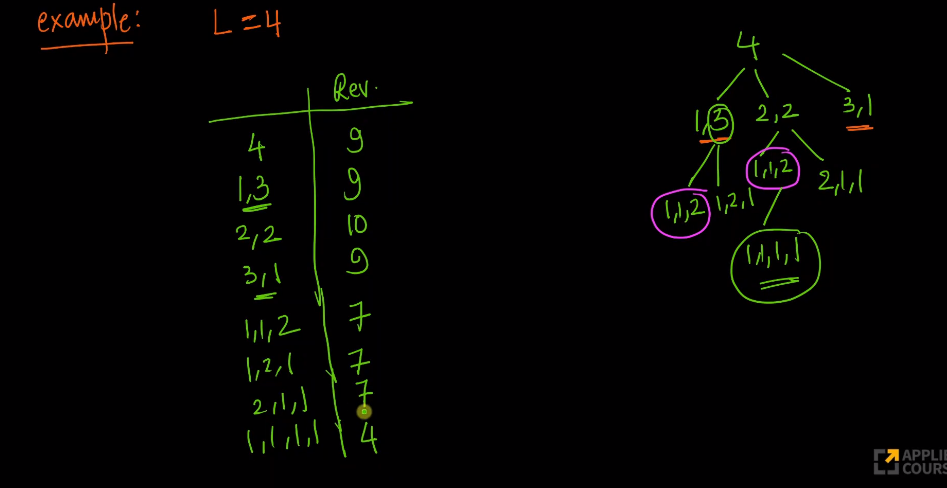 example: L = 4
Rev.
4 9
1,3 9
2,2 10
3,1 9
1,1,2 7
1,2,1 7
2,1,1 7
1,1,1,1 4
4
1,3 2,2 3,1
1,1,2 1,2,1 1,1,2 2,1,1
1,1,1,1
APPLIE
COUR